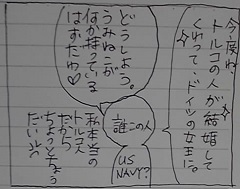 今度ね、
トルコの人が結婚して
くれって、ドイツの女王に。
どうしよう。
うみねこが
何か持っている
はずだわ♡
誰この人
US
NAVY?
私本当の
トルコ人
だから
ちょっとちょう
だい